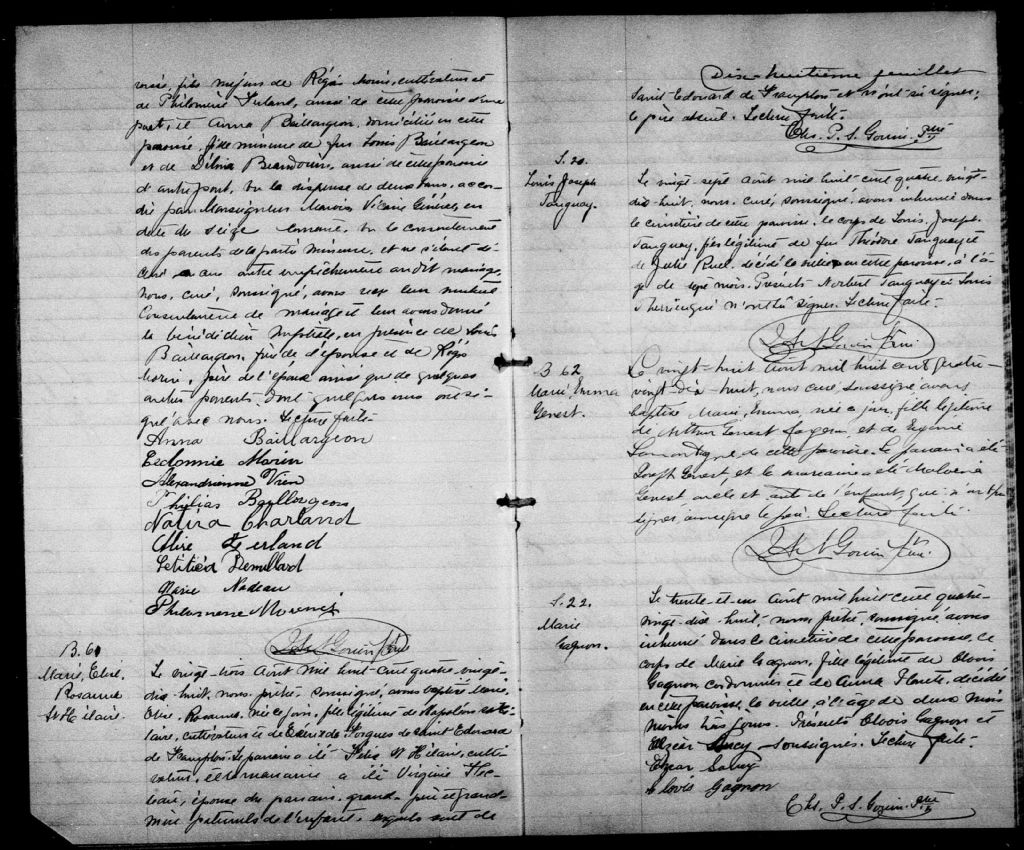 fils majeur de Régis Morin, cultivateur et
de Philomène Ferland, aussi de cette paroisse d'une
part, et Anna Baillargeon, domiciliée en cette
paroisse, fille mineure de feu Louis Baillargeon
et de Délina Beaudouin, aussi de cette paroisse
d'autre part. Vu la dispense de deux bans, accor-
dée par Monseigneur Marois, Vicaire Général, en
date du seize courant. Vu le consentement
des parents de la partie mineure, et ne s'étant dé-
couvert aucun autre empêchement au dit mariage,
nous, curé, soussigné, avons reçu leur mutuel
consentement de mariage et leur avons donné
la bénédiction nuptiale, en présence de Louis
Baillargeon, frère de l'épouse et de Régis
Morin, père de l'époux ainsi que de quelques
autres parents, dont quelques uns ont si-
gné avec nous. Lecture faite.
Anna Baillargeon
Exdomnie Morin
Alexandrienne Vien
Philias Baillargeon
Nalira Charland
Alire Ferland
Letitiea Demillard
Marie Nadeau
Philomene Morency
Jos. N. Gouin Ptre
B. 61
Marie, Elise,
Rosanna
St Hilaire.
Le vingt-trois Août mil huit-cent quatre-vingt-
dix-huit, nous, prêtre, soussigné, avons baptisé Marie,
Elise, Rosanna, née ce jour, fille légitime de Napoléon St Hi-
laire, cultivateur et de Exérilda Forgues de Saint Edouard
de Frampton. Le parrain a été Félix St Hilaire, culti-
vateur, et la marraine a été Virginie
épouse du parrain, grand-père et grand-
mère paternels de l'enfant, lesquels sont de
Dix-huitième feuillet
Saint Edouard de Frampton et n'ont su signer;
le père absent. Lecture faite.
Chs. P. S. Gouin. Ptre
S. 20.
Louis Joseph
Tanguay.
Le vingt-sept Août mil huit-cent quatre-vingt-
dix-huit, nous, curé, soussigné, avons inhumé dans
le cimetière de cette paroisse, le corps de Louis, Joseph
Tanguay, fils légitime de feu Théodore Tanguay et
de Julie Ruel, décédé la veille en cette paroisse, à l'â-
ge de sept mois. Présents Norbert Tanguay et Louis
Thérrien qui n'ont su signer. Lecture faite.
Jos. N. Gouin Ptre
B 62
Marie, Emma
Genest.
Le vingt-huit Août mil huit cent quatre-
vingt-dix-huit, nous curé, soussigné avons
baptisé Marie, Emma, née ce jour, fille légitime
de Arthur Genest forgeron, et de Eugénie
Lamontagne de cette paroisse. Le parrain a été
Joseph Genest, et la marraine a été Malvina
Genest oncle et tante de l'enfant, qui n'ont pu
signer, ainsi que le père. Lecture faite.
Jos. N. Gouin Ptre
S. 22.
Marie
Gagnon.
Le trente-et-un Août mil huit cent quatre-
vingt-dix-huit, nous, prêtre, soussigné, avons
inhumé dans le cimetière de cette paroisse, le
corps de Marie Gagnon, fille légitime de Clovis
Gagnon cordonnier et de Anna Plante, décédée
en cette paroisse, la veille, à l'âge de deux mois
moins trois jours. Présents Clovis Gagnon et
Elzear Savoy soussignés. Lecture faite.
Elzear Savoy
Clovis Gagnon
Chs. P. S. Gouin. Ptre